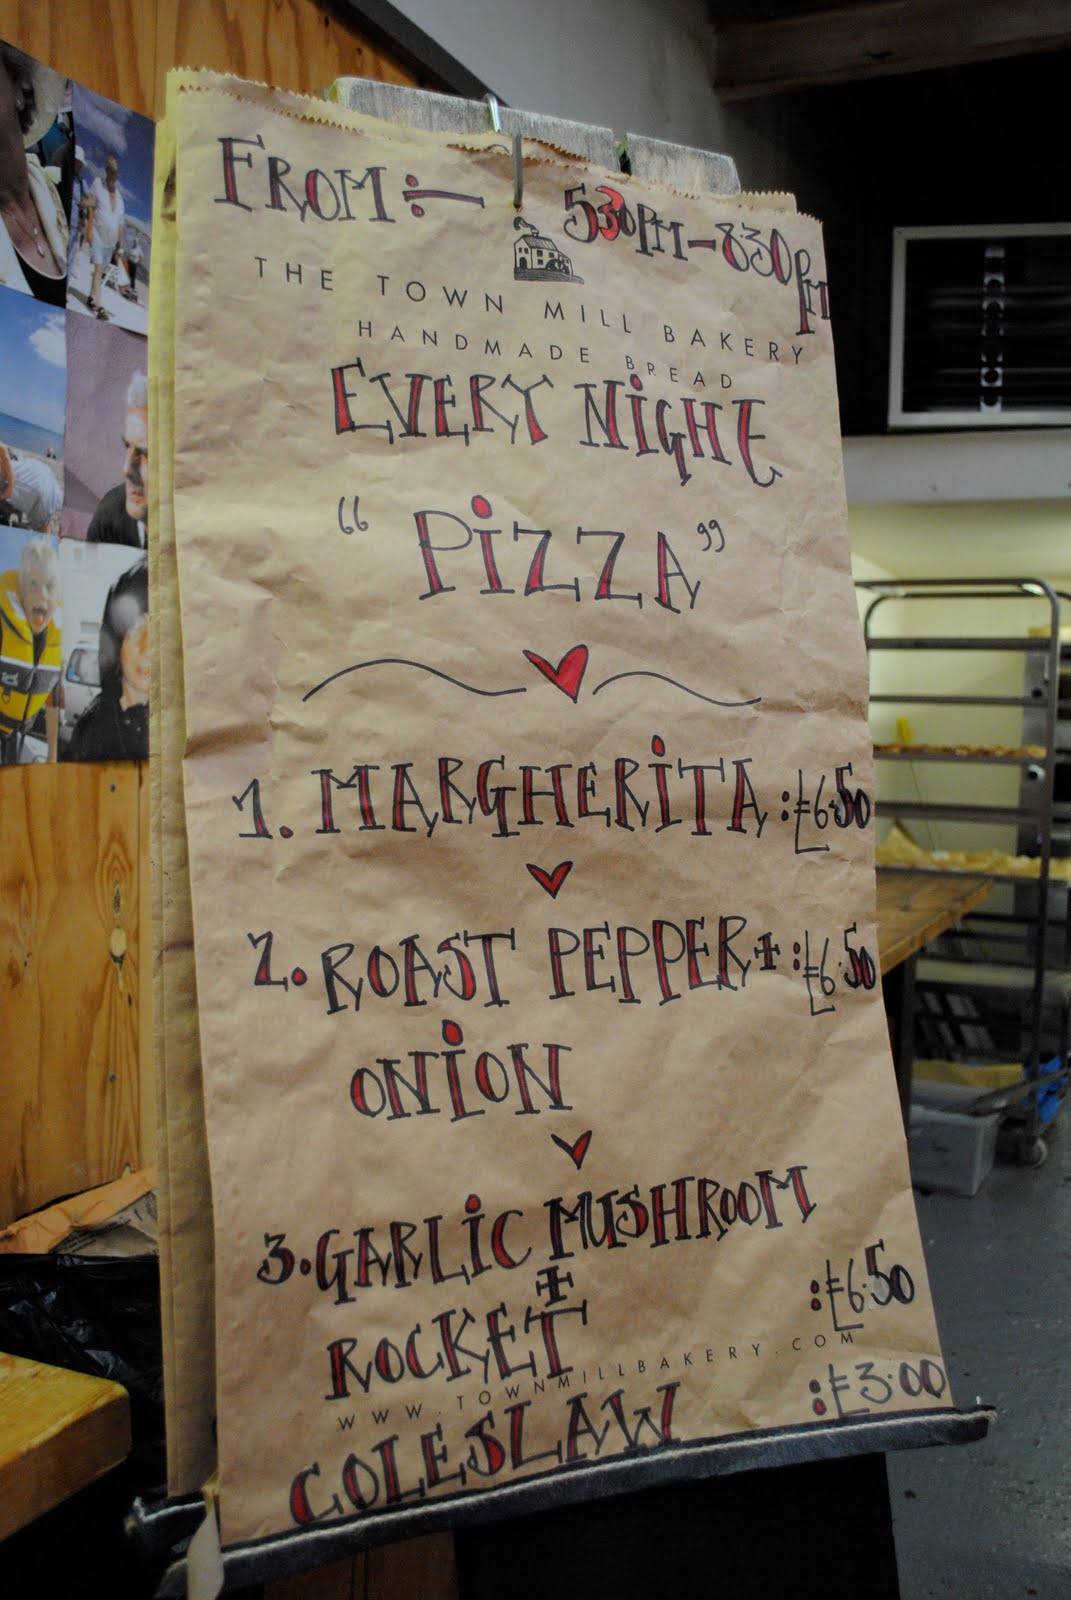 FROM:— 530PM-830PM
THE TOWN MILL BAKERY
HANDMADE BREAD
EVERY NIGHT
“PIZZA”
1. MARGHERITA :£6.50
2. ROAST PEPPER + :£6.50
ONION
3. GARLIC MUSHROOM
+
ROCKET :£6.50
WWW.TOWNMILLBAKERY.COM
COLESLAW :£3.00